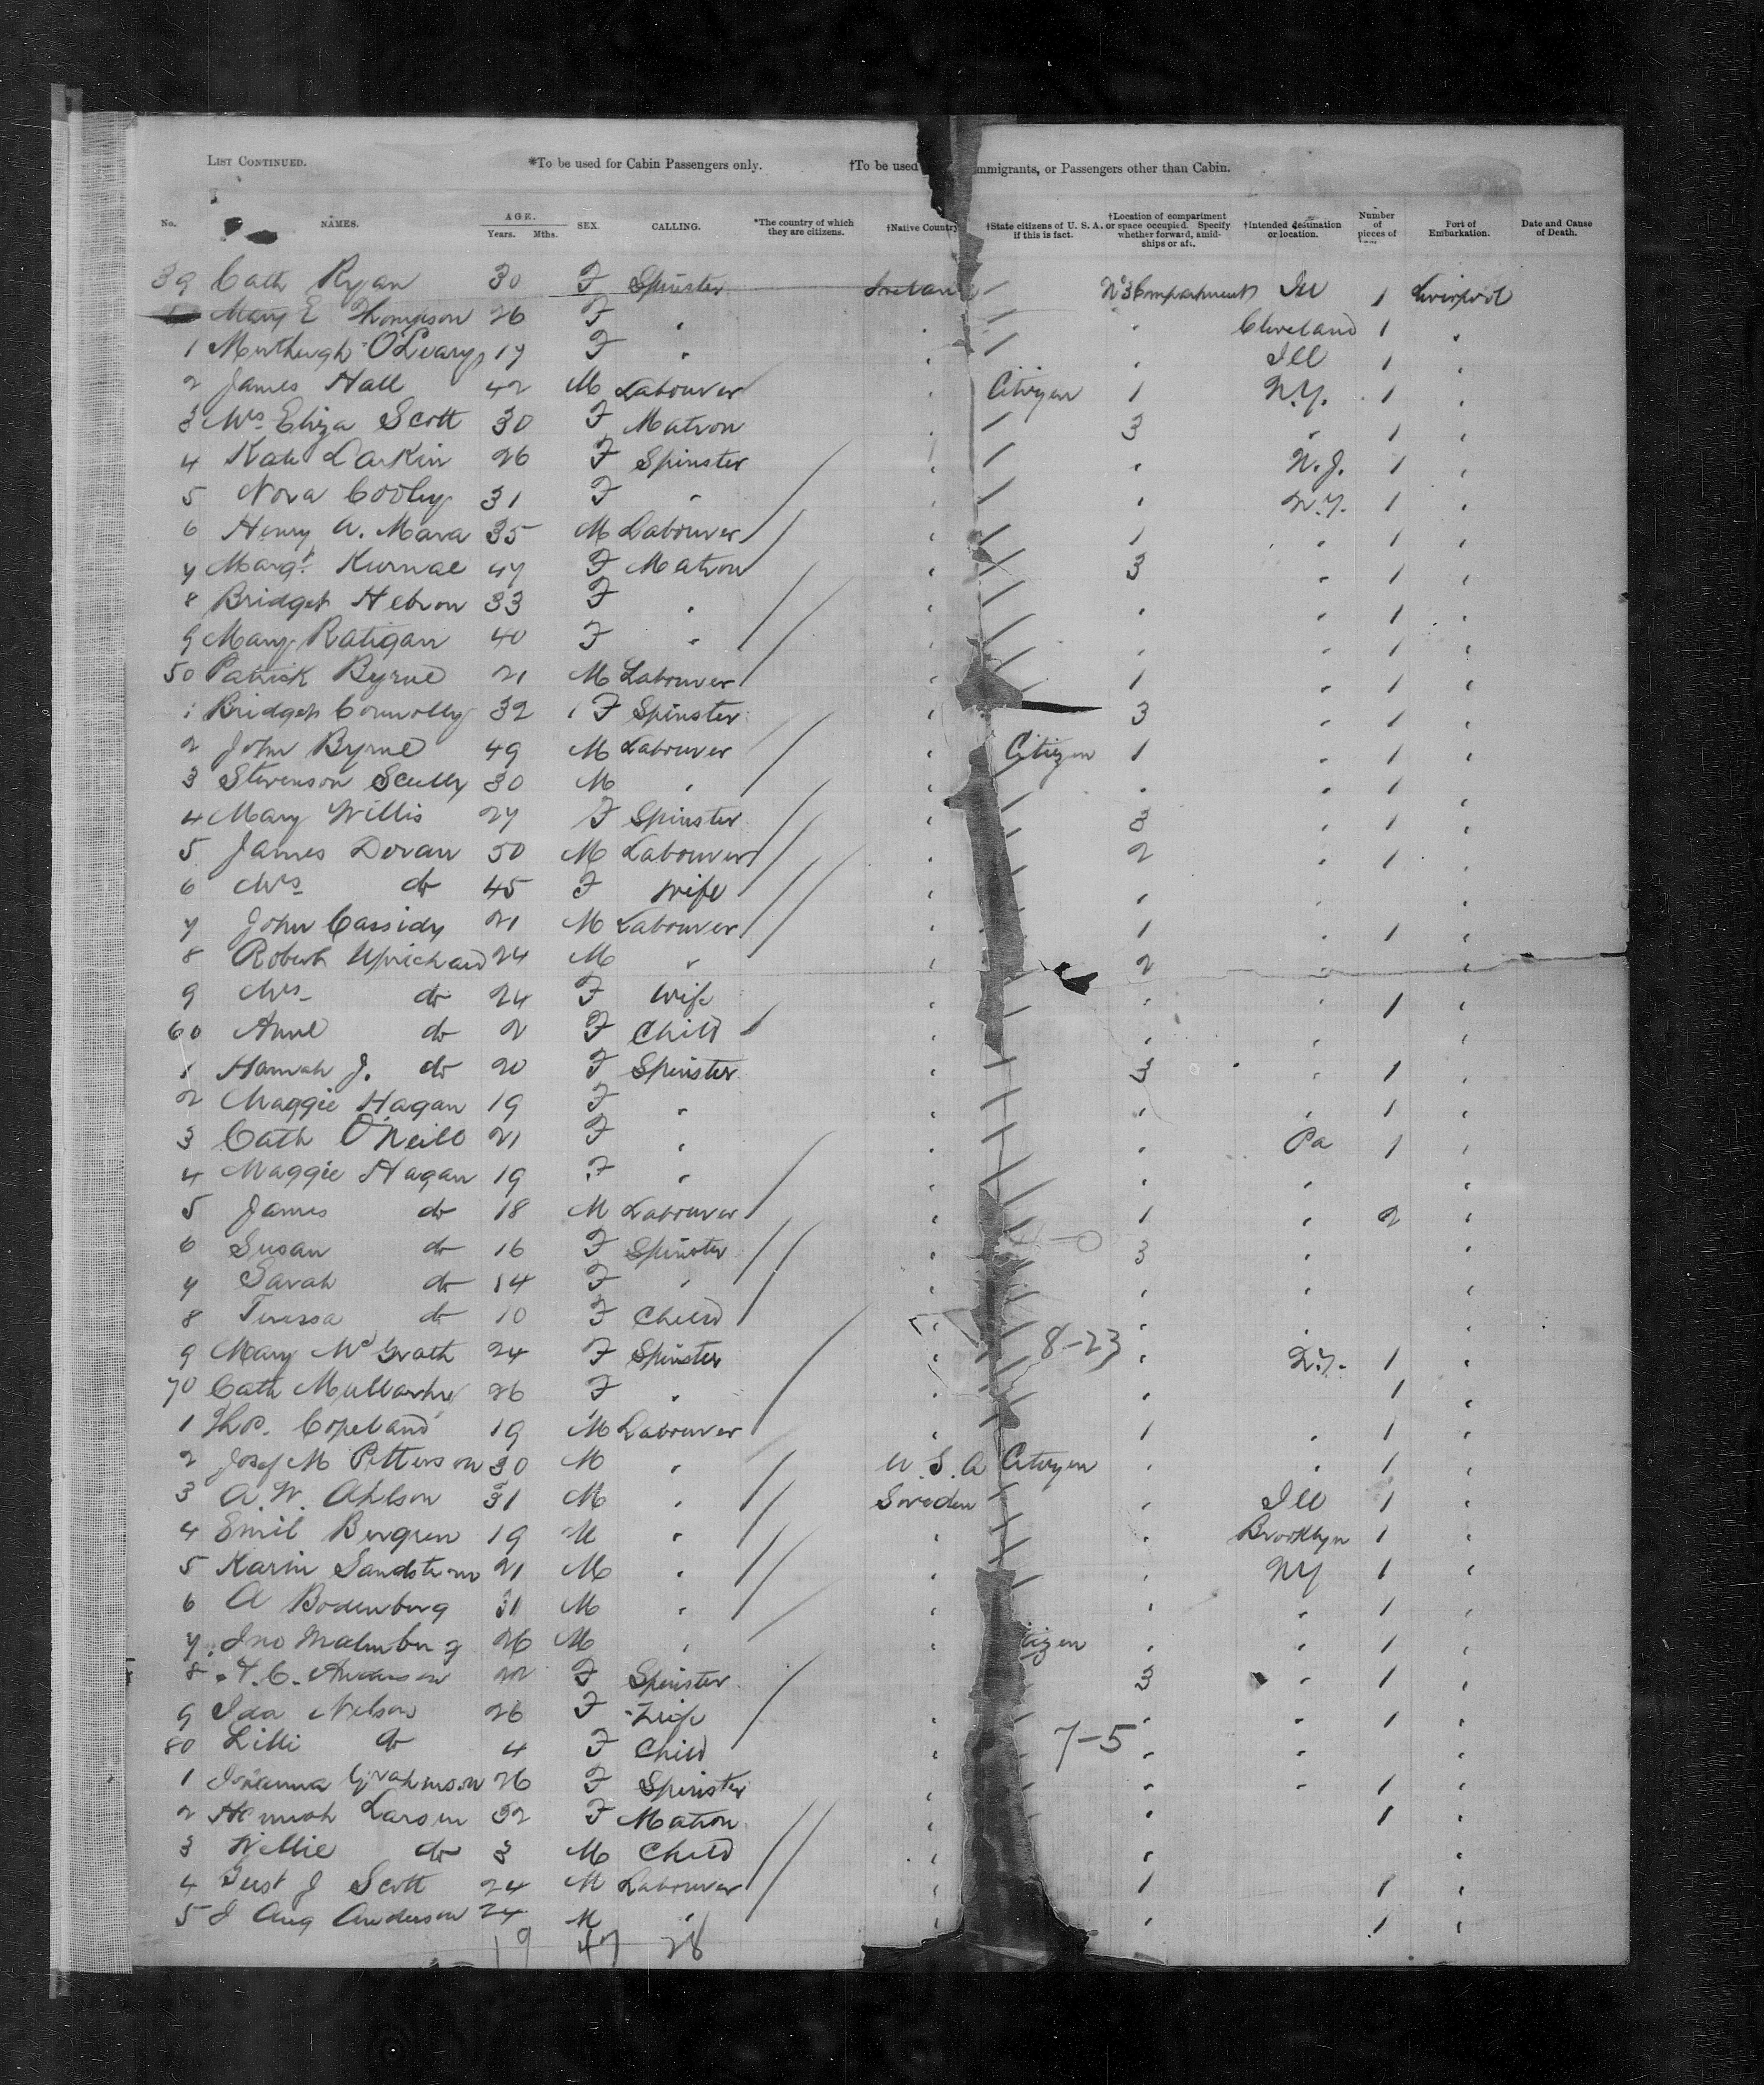 LIST CONTINUED. *To be used for Cabin Passengers only. †To be used mmigrants, or Passengers other than Cabin.
No. NAMES. AGE. Years. Mths. SEX. CALLING. *The country of which they are citizens. †Native Country †State citizens of U. S. A. if this is fact. †Location of compartment or space occupied. Specify whether forward, amidships or aft. †Intended destination or location. Number of pieces of Port of Embarkation. Date and Cause of Death.
39 Cath Ryan 30 F Spinster Ireland / No 3 Compartment Ill 1 Liverpool
Mary E Thompson 26 F " " / " Cleveland 1 "
1 O'Leary 19 F " " / " Ill 1 "
2 James Hall 42 M Labourer " Citizen 1 N.Y. 1 "
3 Mrs Eliza Scott 30 F Matron " / 3 " 1 "
4 Kate Larkin 26 F Spinster " / " N.J. 1 "
5 Nora Cooley 31 F " " / " N.Y. 1 "
6 Henry A. Mara 35 M Labourer " / 1 " 1 "
7 Margt. 47 F Matron " / 3 " 1 "
8 Bridget Hebron 33 F " " / " " 1 "
9 Mary Ratigan 40 F " " / " " 1 "
50 Patrick Byrne 21 M Labourer " 1 " 1 "
1 Bridget Connolly 32 F Spinster " 3 " 1 "
2 John Byrne 49 M Labourer " Citizen 1 " 1 "
3 Stevenson Scully 30 M " " / " " 1 "
4 Mary Willis 27 F Spinster " / 3 " 1 "
5 James Doran 50 M Labourer " / 2 " 1 "
6 Mrs do 45 F Wife / " " "
7 John Cassidy 21 M Labourer " / 1 " 1 "
8 Robert Uprichard 24 M " " / 2 " "
9 Mrs do 24 F Wife " / " " 1 "
60 Anne do 2 F Child " / " " "
1 Hannah J. do 20 F Spinster " / 3 " 1 "
2 Maggie Hagan 19 F " " / " " 1 "
3 Cath O'Neill 21 F " " / " Pa 1 "
4 Maggie Hagan 19 F " " / " " "
5 James do 18 M Labourer " / 1 " 2 "
6 Susan do 16 F Spinster " / 3 " "
7 Sarah do 14 F " " / " " "
8 Teressa do 10 F Child " / " " "
8-23
9 Mary McGrath 24 F Spinster " / " N.Y. 1 "
70 Cath 26 F " " / " 1 "
1 Thos. Copeland 19 M Labourer " / 1 " 1 "
2 Josef M Petterson 30 M " U.S.A Citizen " " 1 "
3 A. W. Ahlson 31 M " Sweden / " Ill 1 "
4 Emil Bergren 19 M " " / " Brooklyn 1 "
5 Karin Sandstrom 21 M " " / " NY 1 "
6 A Bodenberg 31 M " " / " " 1 "
7 Jno Malmberg 26 M " " tizen " " 1 "
8 22 F Spinster / 3 " 1 "
9 Ida Nelson 26 F Wife " / " " 1 "
7-5
80 Lilli do 4 F Child " / " " "
1 Johanna 26 F Spinster " / " " 1 "
2 Hannah Larsen 32 F Matron " " 1 "
3 Willie do 3 M Child " " "
4 Gust J Scott 24 M Labourer " 1 1 "
5 J Aug Anderson 24 M " " " 1 "
19 47 28